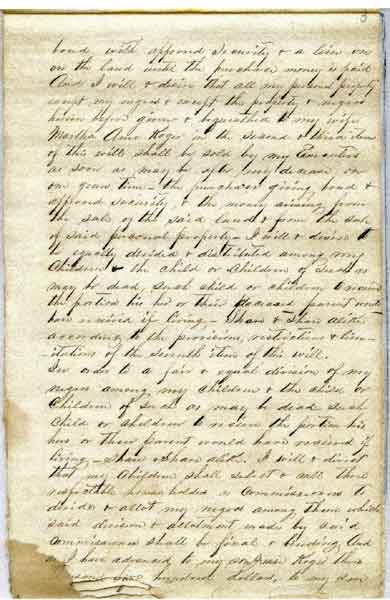 bond with approved Security & a lien on
on the land until the purchase money is paid
And I will & desire that all my personal property
except my negroes & except the property & negroes
herein before given & bequeathed to my wife
Martha Ann Rogers in the second & third item
of this will shall be sold by my Executors
as soon as may be after my decease on
one years time – the purchaser giving bond &
approved security & the money arising from
the sale of the said land & from the sale
of said personal property – I will & desire to
be equally divided & distributed among my
Children & the child or children of such as
may be dead, such child or children to receive
the portion his her or their deceased parent would
have received if living – Share & Share alike
according to the provisions, restrictions & lim-
itations of the seventh item of this will.
In order to a fair & equal division of my
negroes among my children & the child or
Children of such as may be dead such
child or children to receive the portion his
her or their parent would have received if
living – Share & Share alike. I will & direct
that my Children shall select & call three
respectable householders as Commissioners to
divide & allot my negroes among them which
said division & allotment made by said
Commissioners shall be final & binding And
as I have advanced to my son
hundred dollars, to my son